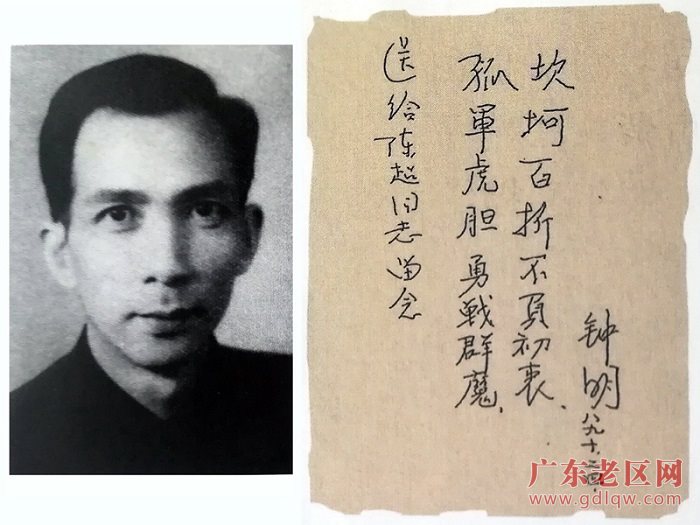 送给陈超同志留念
孤軍虎胆勇戦群魔,
坎坷百折不负初衷、
钟明
八九.十.二四.
广东老区网
www.gdlqw.com